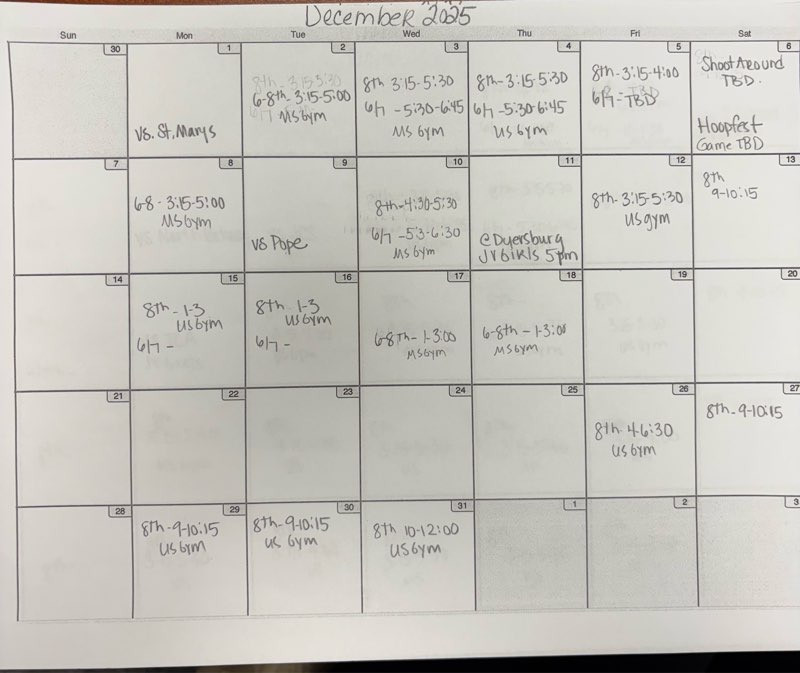 December 2025
Sun Mon Tue Wed Thu Fri Sat
30
1
vs. St. Marys
2
8th - 3:15-5:30
6-8th - 3:15-5:00
MS Gym
3
8th 3:15-5:30
6/7 - 5:30-6:45
MS Gym
4
8th - 3:15-5:30
6/7 - 5:30-6:45
US Gym
5
8th - 3:15-4:00
6/7 - TBD
6
Shoot Around
TBD.
Hoopfest
Game TBD
7
8
6-8 - 3:15-5:00
MS Gym
9
vs Pope
10
8th - 4:30-5:30
6/7 - 5:3-6:30
MS Gym
11
@ Dyersburg
JV Girls 5pm
12
8th - 3:15-5:30
US gym
13
8th
9-10:15
14
15
8th - 1-3
US Gym
6/7 -
16
8th 1-3
US Gym
6/7 -
17
6-8th - 1-3:00
MS Gym
18
6-8th - 1-3:00
MS Gym
19
20
21
22
23
24
25
26
8th 4-6:30
US Gym
27
8th - 9-10:15
28
29
8th - 9-10:15
US Gym
30
8th - 9-10:15
US Gym
31
8th 10-12:00
US Gym
1
2
3